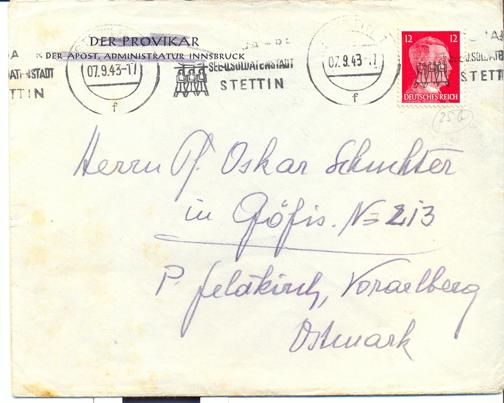 DER PROVIKAR
DER APOST. ADMINISTRATUR INNSBRUCK
07.9.43-17
f
SEE-U.SOLDATENSTADT
STETTIN
07.9.43-17
f
12 12
DEUTSCHES REICH
STETTIN
Herrn Pf. Oskar Schuchter
in Göfis. N= 213
P. Feldkirch, Vorarlberg
Ostmark